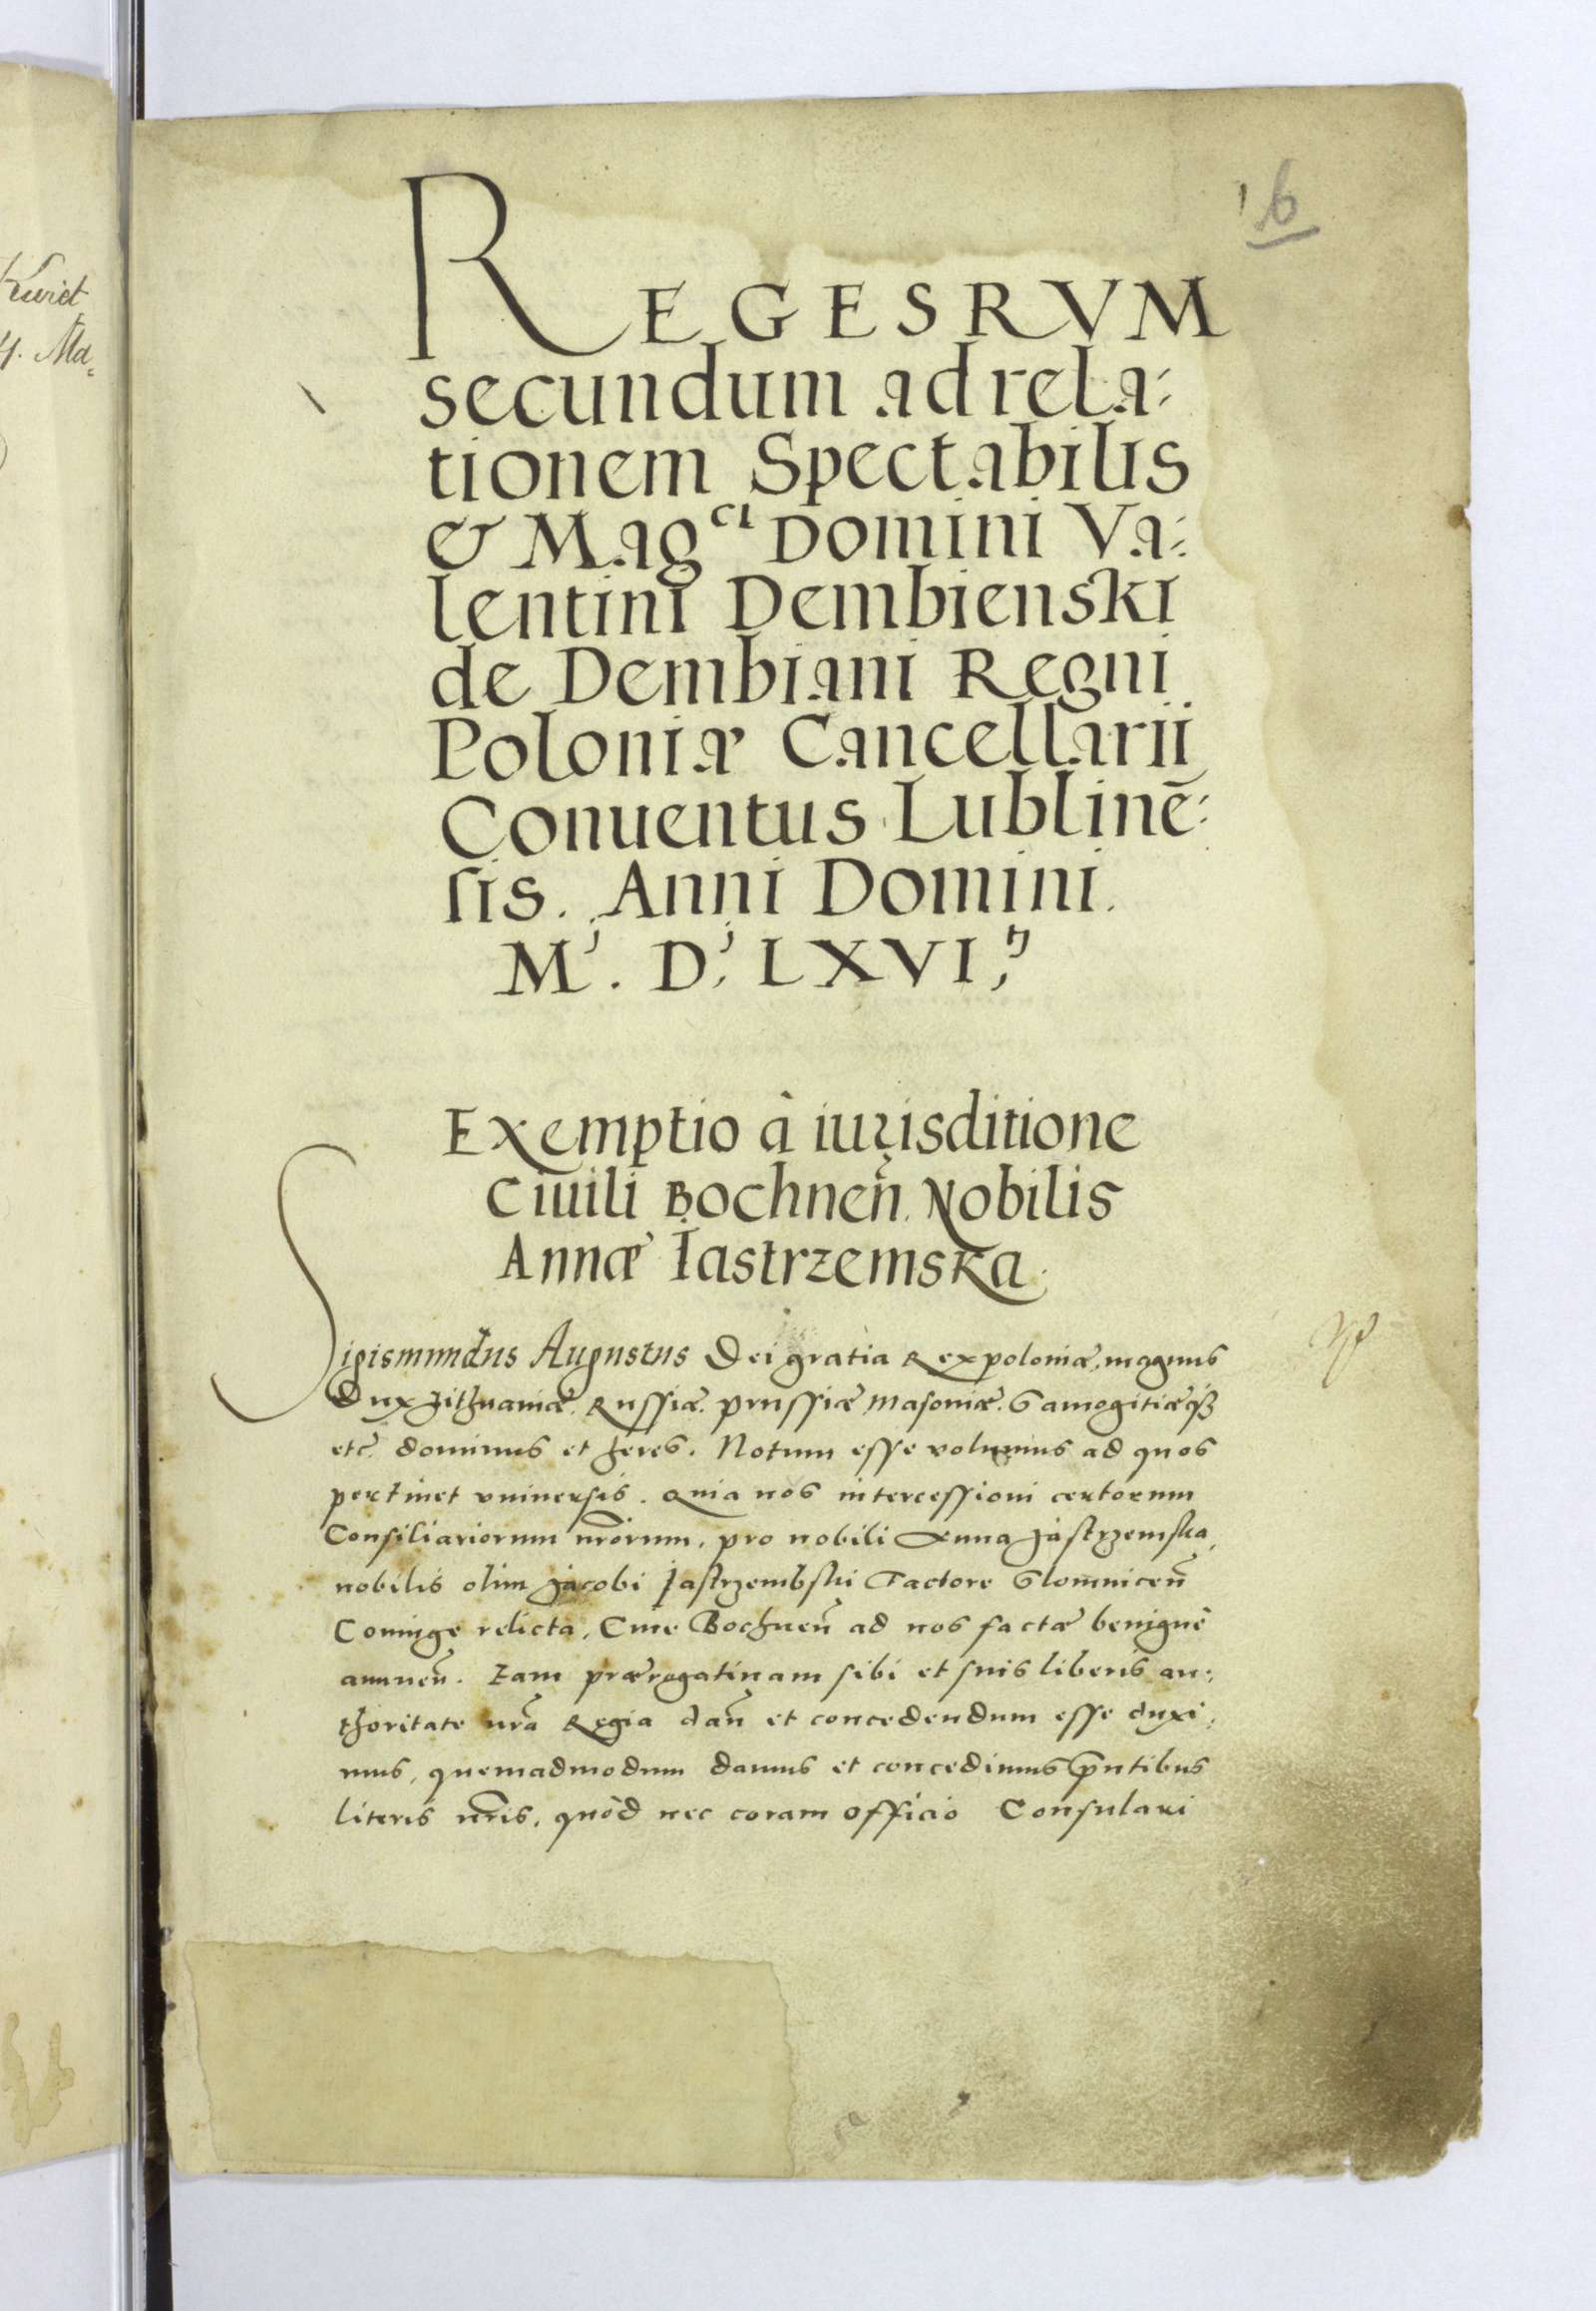 16
REGESRVM
secundum ad rela-
tionem Spectabilis
& Mag^ci Domini Va-
lentini Dembienski
de Dembiani Regni
Poloniæ Cancellarii
Conuentus Lublinē-
sis. Anni Domini.
M. D. LXVI
Exemptio à iurisditione
Ciuili Bochneñ. Nobilis
Annæ Iastrzemska.
Sigismundus Augustus Dei gratia Rex poloniæ, magnus
Dux Lithuaniæ. Russiæ. prussiæ Masoniæ. Samogitiæqȝ
etc̃ dominus et heres. Notum esse volumus ad quos
pertinet vniuersis. Quia nos intercessioni certorum
Consiliariorum nrõrum, pro nobili Anna Jastrzemska,
nobilis olim Jacobi Jastrzembski Factore Slomniceñ
Coniuge relicta, Ciue Bochneñ ad nos factæ benignè
annueñ. Eam prærogatiuam sibi et suis liberis au-
thoritate nrã Regia dañ et concedendum esse duxi-
mus, quemadmodum damus et concedimus pñtibus
literis nrĩs, quòd nec coram officio Consulari
Kuriet
4. Ma-